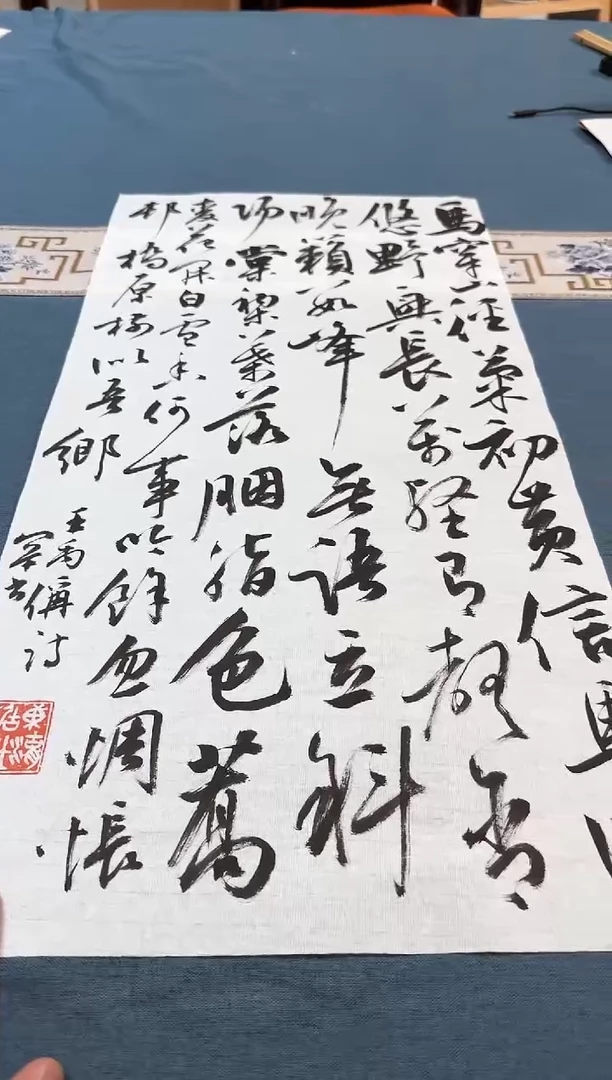 馬穿山徑菊初黃信馬
悠野興長萬壑有聲含
晚籟數峰無語立斜
陽棠梨葉落胭脂色蕎
麥花開白雪香何事吟餘忽惆悵
邨橋原樹似吾鄉
王禹偁詩